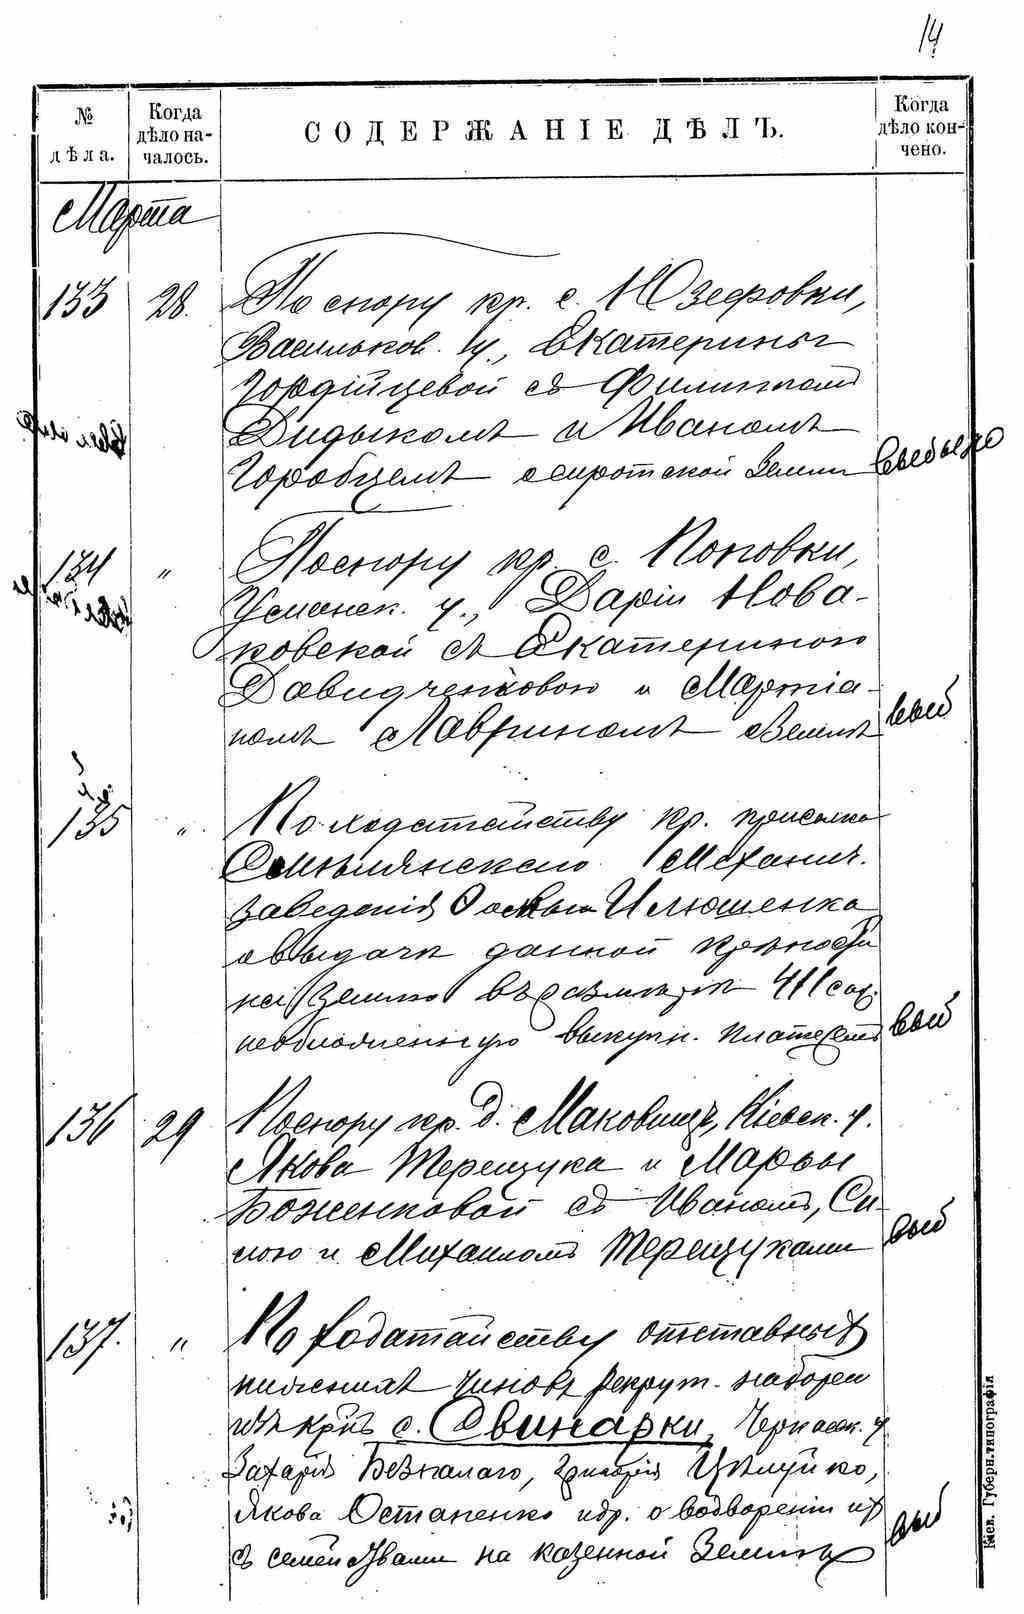 14
№ дѣла.
Когда дѣло началось.
СОДЕРЖАНІЕ ДѢЛЪ.
Когда дѣло кончено.
Марта
133 28. По спору кр. с. Юзефовки,
Васильков. у., Екатерины
Гордійцевой съ Филиппомъ
Дидыкомъ и Иваномъ
Горобцемъ о сиротской земли
134 " По спору кр. с. Поповки,
Уманск. у., Даріи Нова-
ковской съ Екатериною
Давидченковою и Мартіа-
номъ Лавриномъ о земле выб
135 " По ходатайству кр. приселка
Смѣлянскаго Механич.
заведенія Илюшенка
о выдачи данной крѣпости
на землю въ размѣрѣ 411 саж.
необложенную выкупн. платежемъ выб
136 29 По спору кр. д. Маковищъ, Кіевск. у.
Якова Терещука и Марьи
Боженковой съ Иваномъ, Си-
лою и Михаиломъ Терещуками выб
137. " По ходатайству отставных
нижнихъ чиновъ рекрут. набора
изъ крѣп. с. Свинарки, Черкасск. у
Захарія Безпалаго, Григорія Цѣлуйко,
Якова Остапенко и др. о водвореніи их
съ семействами на казенной земли выб
Кіев. Губерн. типографія